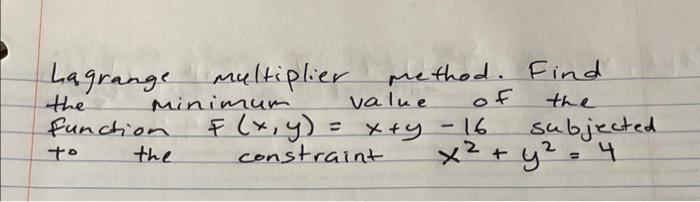 Lagrange multiplier method. Find
the minimum value of the
function F(x,y) = x+y -16 subjected
to the constraint x² + y² = 4